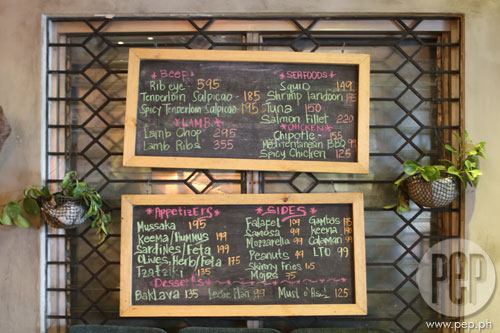 *BEEF*
Rib eye - 595
Tenderloin Salpicao - 185
Spicy Tenderloin Salpicao - 195
*LAMB*
Lamb Chop 295
Lamb Ribs 355
*SEAFOODS*
Squid 149
Shrimp tandoori 195
Tuna 150
Salmon Fillet 220
*CHICKEN*
Chipotle - 155
Mediterranean BBQ
Spicy Chicken 125
*APPETIZERS*
Mussaka 195
Keema/Hummus 199
Sardines/Feta 199
Olives, Herb/Feta 175
Tzatziki 135
Desserts
Baklava 135
*SIDES*
Falafel 109
Samosa 99
Mozzarella 99
Peanuts
Skinny Fries 65
Mojos 75
Gambas 195
Keema 199
Calamari
LTO 99
125
PEP
PEP.ph
www.pep.ph